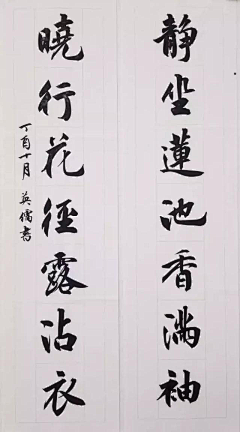 靜坐蓮池香滿袖
曉行花徑露沾衣
丁酉十月 英儒書